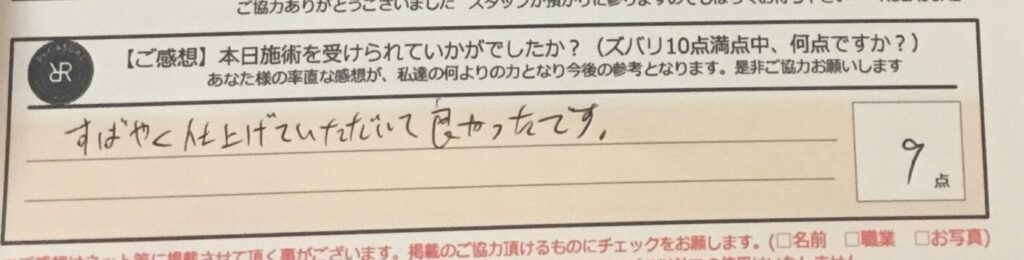 ご協力ありがとうございました
【ご感想】本日施術を受けられていかがでしたか?(ズバリ10点満点中、何点ですか?)
あなた様の率直な感想が、私達の何よりの力となり今後の参考となります。是非ご協力お願いします
すばやく仕上げていただいて良かったです。
9
点
させて頂く事がございます。掲載のご協力頂けるものにチェックをお願します。(□名前 □職業 □お写真)